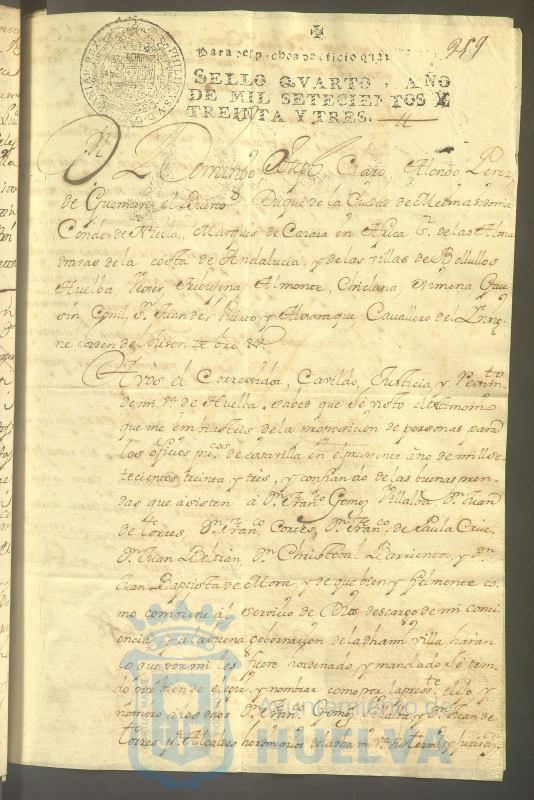 959
Para despachos de oficio quatro mrs
SELLO QVARTO, AÑO
DE MIL SETECIENTOS Y
TREINTA Y TRES.
Dn Domingo Joseph Claro, Alonso Perez
de Guzman el Bueno Duque de la Ciudad de Medina sidonia
Conde de Niebla, Marques de Cazaza en Africa Sr. de las Alma
drabas de la costa de Andalucia, y de las villas de Bollullos
Huelba, Almonte, Chiclana, Ximena, Gau
sin Sn. Juan del Puerto y Aljaraque Cavallero de la Insig
ne orden del toison de oro &a
A vos el Correxidor, Cavildo, Justicia y Rexim.to
de mi va. de Huelba, sabed que he visto el testimonio
que me embiasteis de la proposicion de personas para
los oficios pu.cos de esa villa en el presente año de mil se
tecientos treinta y tres, y confiando de las buenas pren
das que asisten á Dn. Fran.co Gomez Villalba, Dn. Juan
de Torres Dn. Fran.co Cortes, Dn. Fran.co de Paula
Dn. Juan Beltran, Dn. Christobal Barrientos, y Dn.
Juan Baptista de Mora, y de que bien y fielmente co
mo combiene al servicio de Dios descargo de mi conci
encia, y a la buena gobernacion de la dha mi villa haran
lo que por mi les fuere hordenado y mandado he teni
do por bien de elexir, y nombrar como por la pres.te elijo, y
nombro a los dhos Dn. Fran.co Gomez Villalba y Dn. Juan de
Torres pr. Alcaldes hordinarios de la dha mi va. su termo. y jurisdon.
Ayuntamiento de
HUELVA